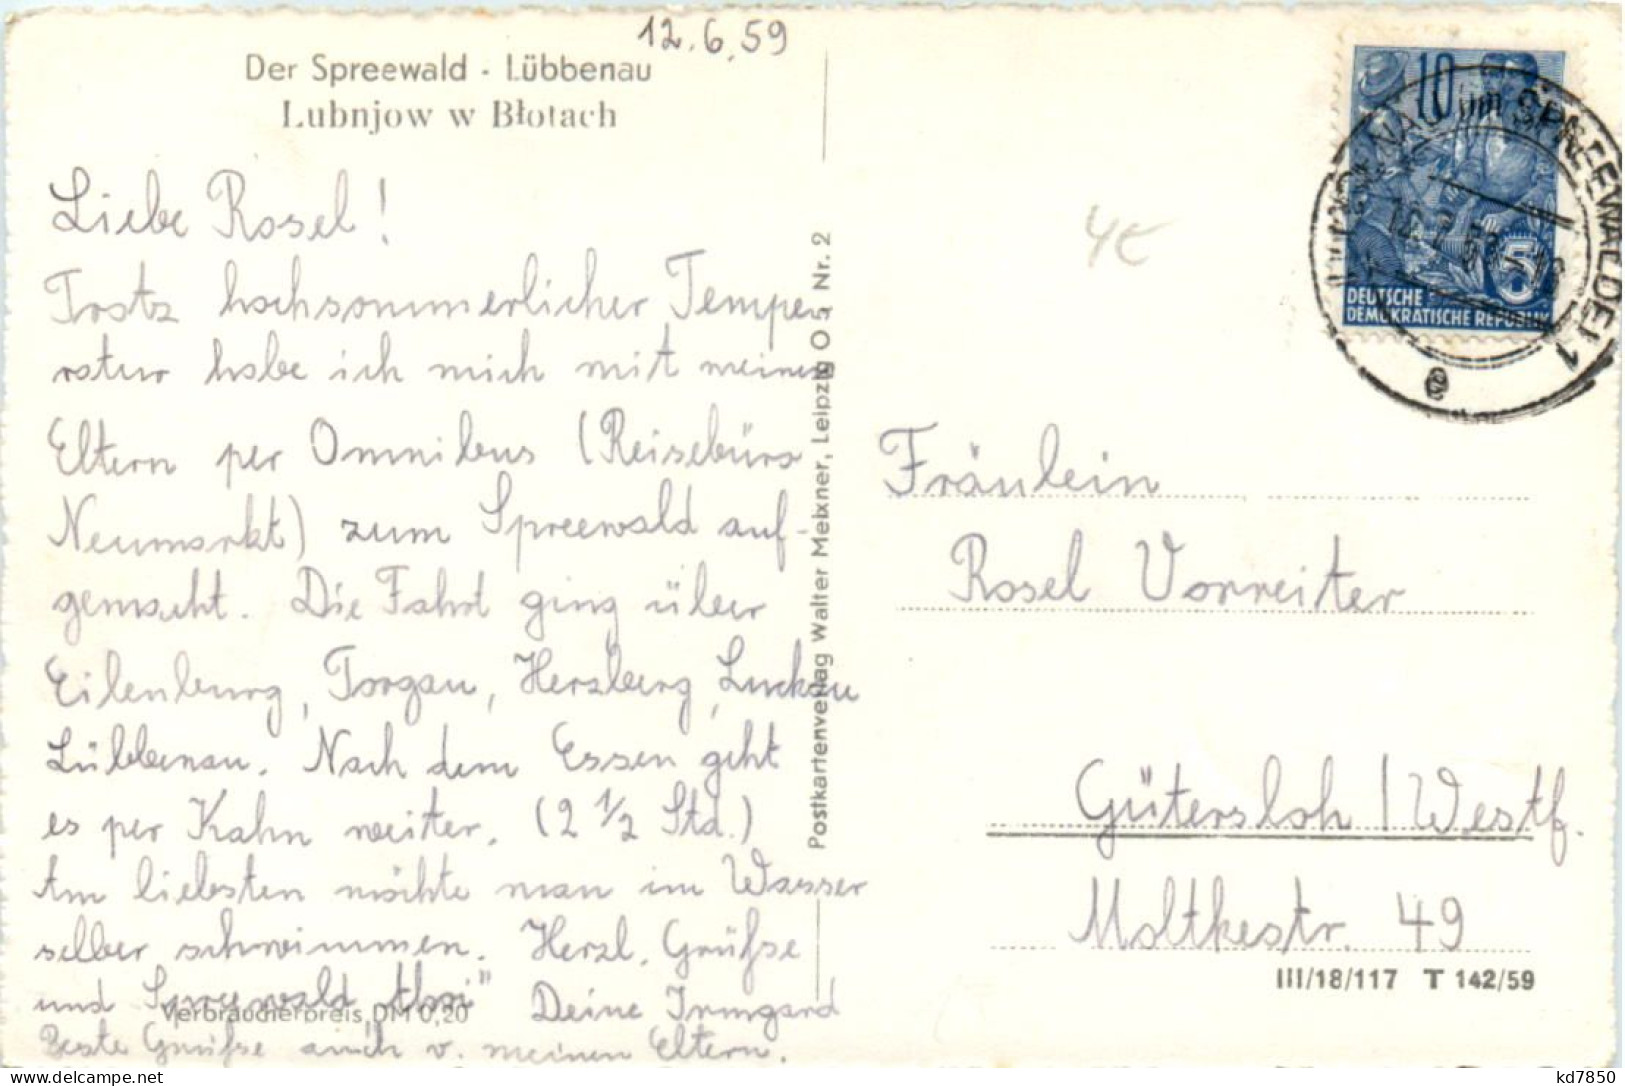 12.6.59
Der Spreewald - Lübbenau
Lubnjow w Błotach
Liebe Rosel!
Trotz hochsommerlicher Tempe-
ratur habe ich mich mit meinen
Eltern per Omnibus (Reisebüro
Neumarkt) zum Spreewald auf-
gemacht. Die Fahrt ging über
Eilenburg, Torgau, Herzberg, Luckau
Lübbenau. Nach dem Essen geht
es per Kahn weiter. (2 1/2 Std.)
Am liebsten möchte man im Wasser
selber schwimmen. Herzl. Grüße
und Spreewald Deine Irmgard
Verbraucherpreis DM 0,20
Beste Grüße auch v. meinen Eltern.
Postkartenverlag Walter Meixner, Leipzig O 5 Nr. 2
4€
10
5
DEUTSCHE
DEMOKRATISCHE REPUBLIK
im SPREEWALDE 1
e
Fräulein
Rosel Vorreiter
Gütersloh / Westf.
Moltkestr. 49
III/18/117 T 142/59
the-postcard.com
kd7850